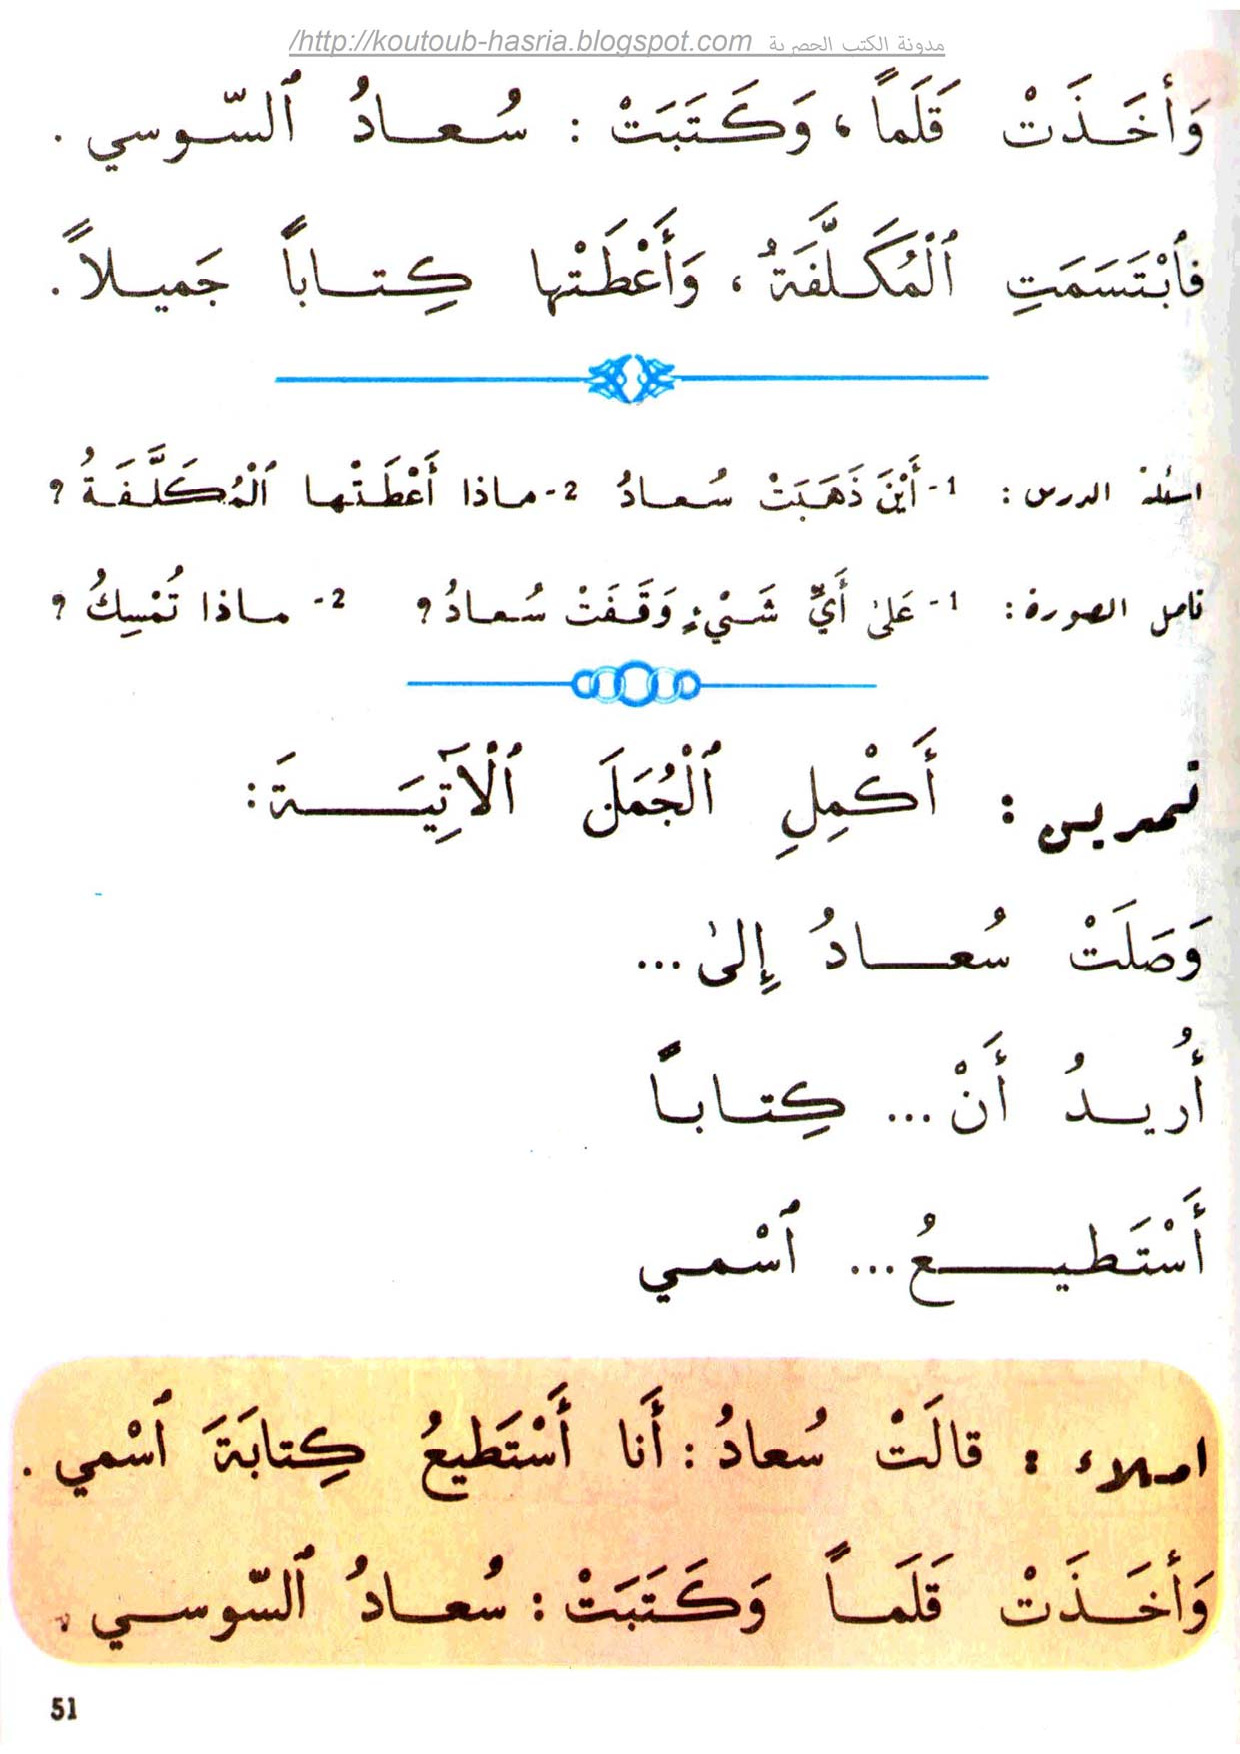 مدونة الكتب الحصرية http://koutoub-hasria.blogspot.com/
وَأَخَذَتْ قَلَماً، وَكَتَبَتْ : سُعادُ ٱلسّوسي .
فَٱبْتَسَمَتِ ٱلْمُكَلَّفَةُ، وَأَعْطَتْها كِتاباً جَميلاً.
اسئلة الدرس : 1 - أَيْنَ ذَهَبَتْ سُعادُ 2 - ماذا أَعْطَتْها ٱلْمُكَلَّفَةُ ؟
تامل الصورة : 1 - عَلىٰ أَيِّ شَيْءٍ وَقَفَتْ سُعادُ ؟ 2 - ماذا تُمْسِكُ ؟
تمرين : أَكْمِلِ ٱلْجُمَلَ ٱلْآتِيَةَ :
وَصَلَتْ سُعادُ إِلىٰ ...
أُريدُ أَنْ ... كِتاباً
أَسْتَطيعُ ... ٱسْمي
املاء : قالَتْ سُعادُ : أَنا أَسْتَطيعُ كِتابَةَ ٱسْمي .
وَأَخَذَتْ قَلَماً وَكَتَبَتْ : سُعادُ ٱلسّوسي .
51